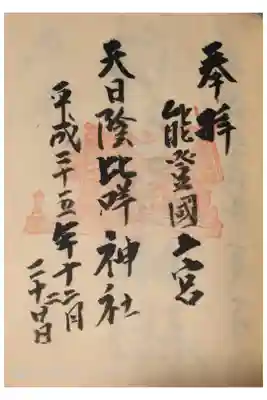 奉拝
能登國二宮
天日陰比咩神社
平成二十五年十二月
二十二日